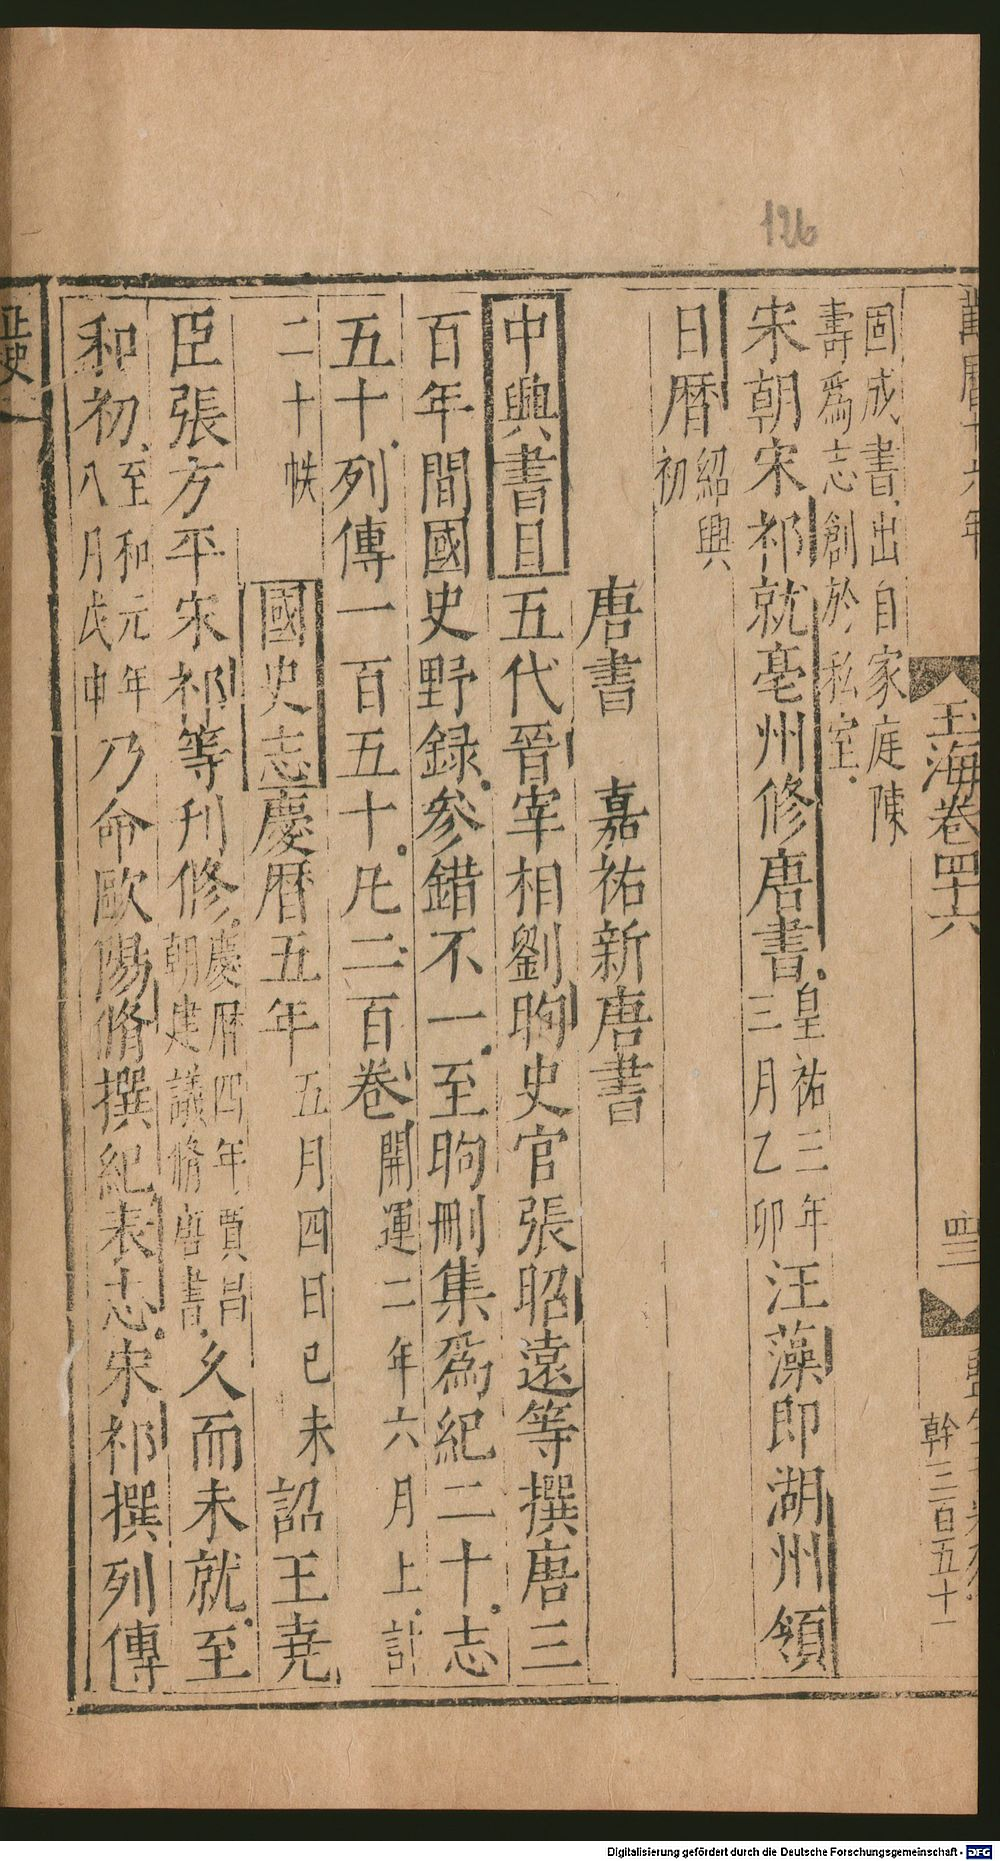 126
萬曆十六年
玉海卷四十六
四三
幹三百五十一
固成書出自家庭陳
壽爲志創於私室
宋朝宋祁就亳州修唐書皇祐三年三月乙卯汪藻即湖州領
日曆紹興初
唐書 嘉祐新唐書
中興書目五代晉宰相劉昫史官張昭遠等撰唐三
百年間國史野錄參錯不一至昫刪集爲紀二十志
五十列傳一百五十凡二百卷開運二年六月上計
二十帙 國史志慶曆五年五月四日己未詔王堯
臣張方平宋祁等刊修慶曆四年賈昌朝建議脩唐書久而未就至
和初至和元年八月戊申乃命歐陽脩撰紀表志宋祁撰列傳
正史
Digitalisierung gefördert durch die Deutsche Forschungsgemeinschaft - DFG